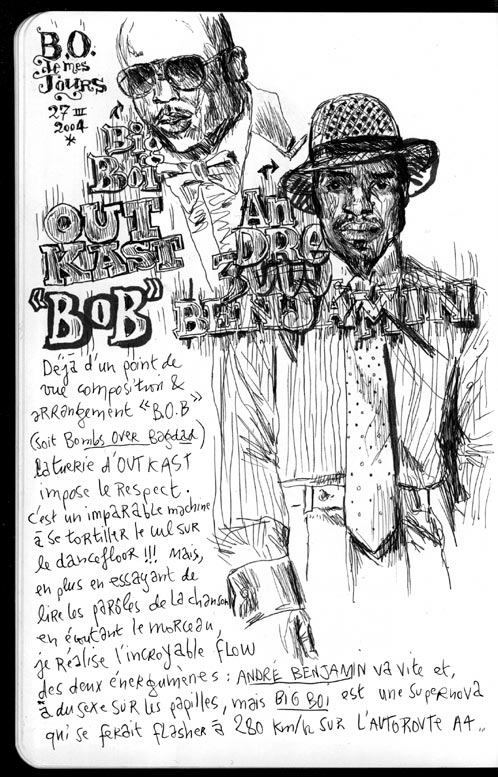 B.O.
de mes
Jours
27 III
2004
*
Big
Boi
OUT
KAST
"BoB"
An
DRE
3000
BENJAMIN
Déjà d'un point de
vue composition &
arrangement "B.O.B"
(soit Bombs Over Bagdad)
la tuerie d'OUTKAST
impose le Respect.
c'est un imparable machine
à se tortiller le cul sur
le dancefloor !!! Mais,
en plus en essayant de
lire les paroles de la chanson
en écoutant le morceau,
je réalise l'incroyable flow
des deux énergumènes : ANDRÉ BENJAMIN va vite et,
à du sexe sur les papilles, mais BIG BOI est une supernova
qui se ferait flasher à 280 km/h sur l'AUTOROUTE A4..